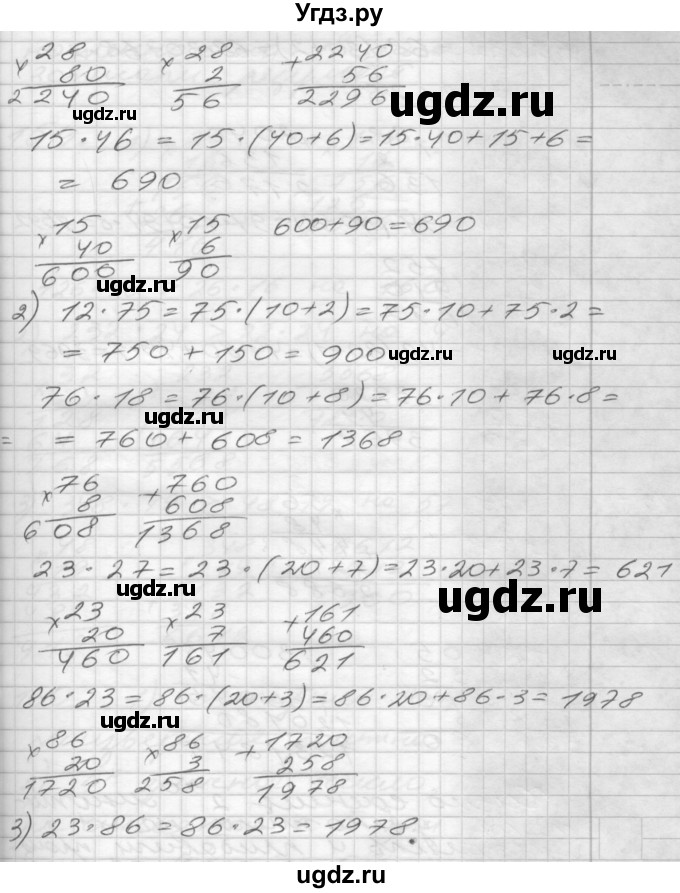 Угдз.ру
×28 ×28 +2240
80 2 56
2240 56 2296
ugdz.ru
ugdz.ru
15·46 = 15·(40+6)=15·40+15+6=
= 690
×15 ×15 600+90=690
40 6
600 90
ugdz.ru
2) 12·75=75·(10+2)=75·10+75·2=
= 750+150= 900
ugdz.ru ugdz.ru
76·18=76·(10+8)=76·10+76·8=
ugdz.ru
= = 760+608=1368
×76 +760
8 608
608 1368
23·27=23·(20+7)=23·20+23·7=621
ugdz.ru ugdz.ru
×23 ×23 +161
20 7 460
460 161 621
86·23=86·(20+3)=86·20+86·3=1978
ugdz.ru
×86 ×86 +1720
20 3 258
1720 258 1978
3) 23·86=86·23=1978.
ugdz.ru